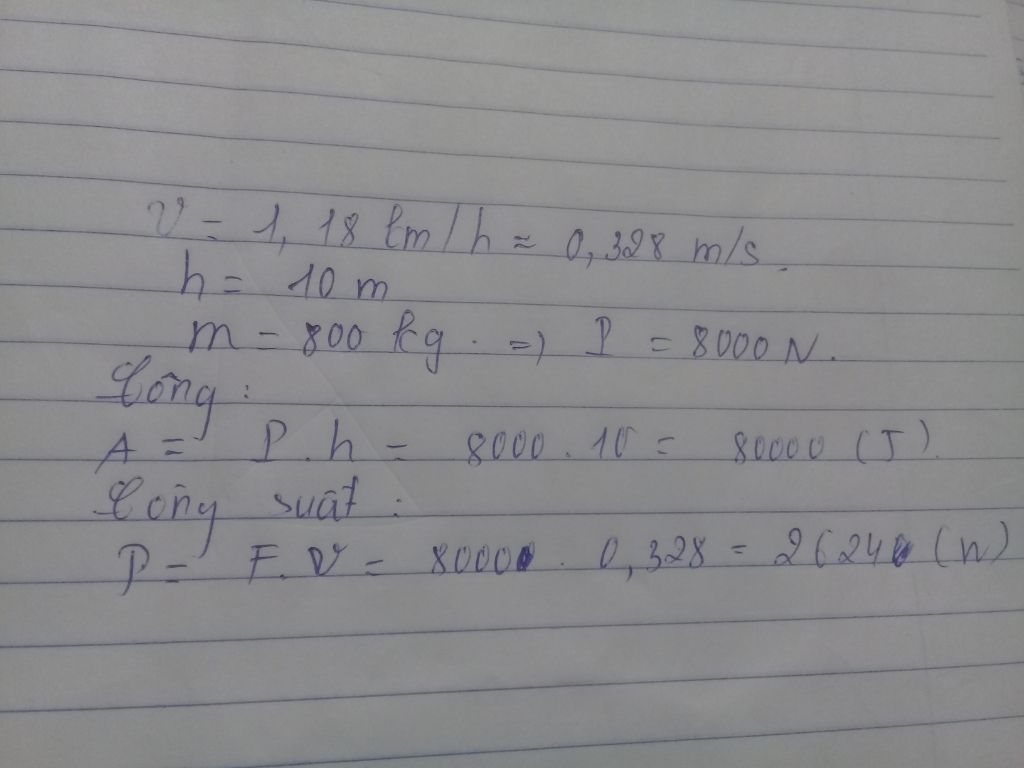 v = 1,18 km/h ≈ 0,328 m/s.
h = 10 m
m = 800 kg. => P = 8000 N.
Công:
A = P.h = 8000.10 = 80000 (J).
Công suất:
P = F.v = 8000. 0,328 = 2624 (W)